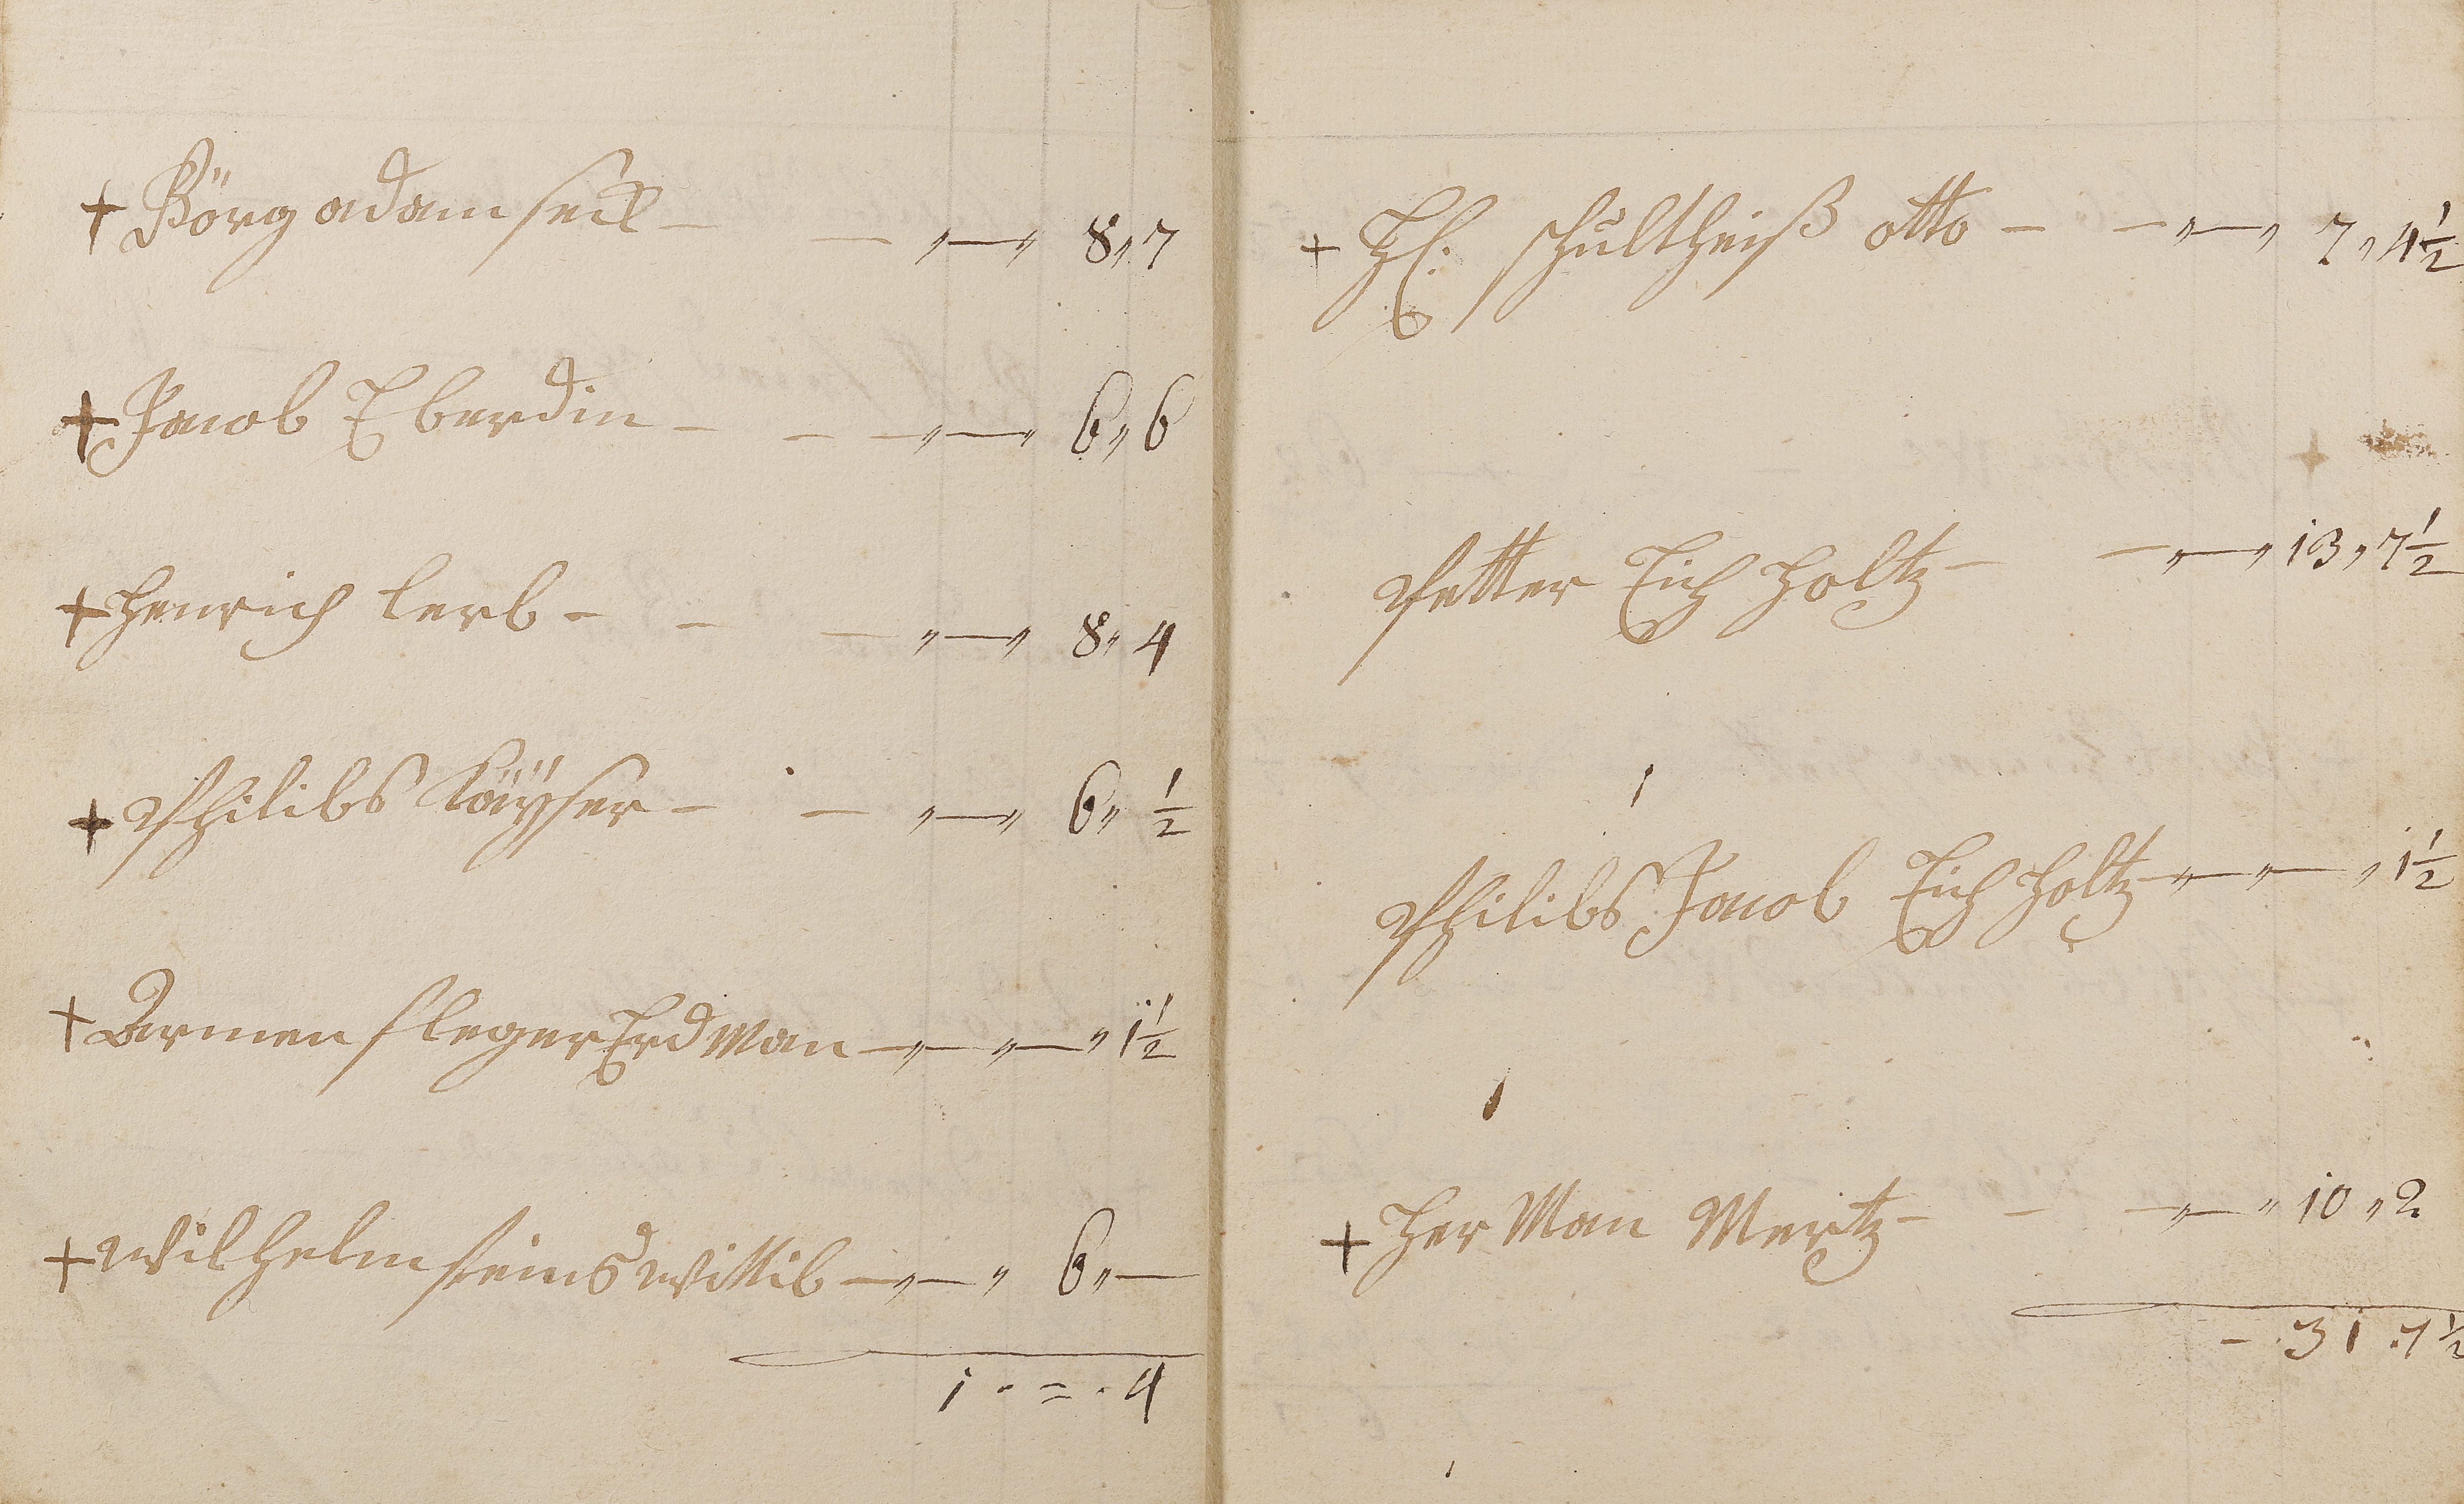 + Görg adam seil - - „—„ 8„7
+ Jacob Eberdin - - —„—„ 6„6
+ Henrich lerb - - —„—„ 8„4
+ Philibs Käÿser - - „—„ 6„ ½
+ Armen fleger Erdman —„—„—„ 1½
+ Wilhelm seins Wittib —„—„ 6„—
1 · = · 4
+ H: schultheiß otto - -„—„ 7„4½
Petter Eich Holtz - —„—„ 13„7½
Philibs Jacob Eich Holtz —„—„—„ 1½
+ Her Man Mertz - - —„—„ 10„2
- 31 . 7½